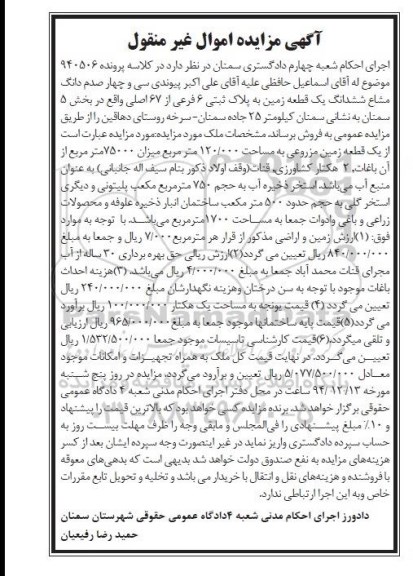 آگهی مزایده اموال غیر منقول
اجرای احکام شعبه چهارم دادگستری سمنان در نظر دارد در کلاسه پرونده ۹۴۰۵۰۶
موضوع له آقای اسماعیل حافظی علیه آقای علی اکبر پیوندی سی و چهار صدم دانگ
مشاع ششدانگ یک قطعه زمین به پلاک ثبتی ۶ فرعی از ۶۷ اصلی واقع در بخش ۵
سمنان به نشانی سمنان کیلومتر ۲۵ جاده سمنان-سرخه روستای دهاقین را از طریق
مزایده عمومی به فروش برساند. مشخصات ملک مورد مزایده:مورد مزایده عبارت است
از یک قطعه زمین مزروعی به مساحت ۱۲۰/۰۰۰ متر مربع میزان ۷۵۰۰۰متر مربع از
آن باغات، ۲ هکتار کشاورزی، قنات(وقف اولاد ذکور بنام سیف اله جانبانی) به عنوان
منبع آب می‌باشد. استخر ذخیره آب به حجم ۷۵۰ مترمربع مکعب پلیتونی و دیگری
استخر گلی به حجم حدود ۵۰۰ متر مکعب ساختمان انبار ذخیره علوفه و محصولات
زراعی و باغی وادوات جمعا به مساحت ۱۷۰۰مترمربع می‌باشد. با توجه به موارد
فوق: (۱)ارزش زمین و اراضی مذکور از قرار هر مترمربع۷/۰۰۰ ریال و جمعا به مبلغ
۸۴۰/۰۰۰/۰۰۰ ریال تعیین می گردد(۲)ارزش ریالی حق بهره برداری ۳۰ ساله از آب
مجرای قنات محمد آباد جمعا به مبلغ ۴/۰۰۰/۰۰۰ ریال می‌باشد. (۳)هزینه احداث
باغات موجود با توجه به سن درختان وهزینه نگهدارشان مبلغ ۲۴۰/۰۰۰/۰۰۰ ریال
تعیین می گردد (۴) قیمت یونجه به مساحت یک هکتار ۱۰۰/۰۰۰/۰۰۰ ریال برآورد
می گردد(۵)قیمت پایه ساختمانها موجود جمعا به مبلغ ۹۶۵/۰۰۰/۰۰۰ ریال ارزیابی
و تلقی میگردد(۶)قیمت کارشناسی تاسیسات موجود جمعا ۱/۵۳۲/۵۰۰/۰۰۰ ریال
تعییــن می‌گــردد. در نهایت قیمت کل ملک به همراه تجهیــزات و امکانات موجود
معــادل ۵/۰۷۷/۵۰۰/۰۰۰ ریال تعیین و برآورد می‌گردد، مزایده در روز پنج شــنبه
مورخه ۹۴/۱۲/۱۳ ساعت در محل دفتر اجرای احکام مدنی شعبه ۴ دادگاه عمومی
حقوقی برگزار خواهد شد. برنده مزایده کسی خواهد بود که بالاترین قیمت را پیشنهاد
و ۱۰٪ مبلغ پیشــنهادی را فی‌المجلس و مابقی وجه را ظرف مهلت بیســت روز به
حساب سپرده دادگستری واریز نماید در غیر اینصورت وجه سپرده ایشان بعد از کسر
هزینه‌های مزایده به نفع صندوق دولت خواهد شد بدیهی است که بدهی‌های معوقه
با فروشنده و هزینه‌های نقل و انتقال با خریدار می باشد و تخلیه و تحویل تابع مقررات
خاص وبه این اجرا ارتباطی ندارد.
دادورز اجرای احکام مدنی شعبه ۴دادگاه عمومی حقوقی شهرستان سمنان
حمید رضا رفیعیان